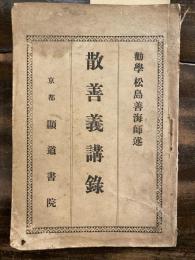 勸學松島善海師述
散善義講錄
京都 顯道書院